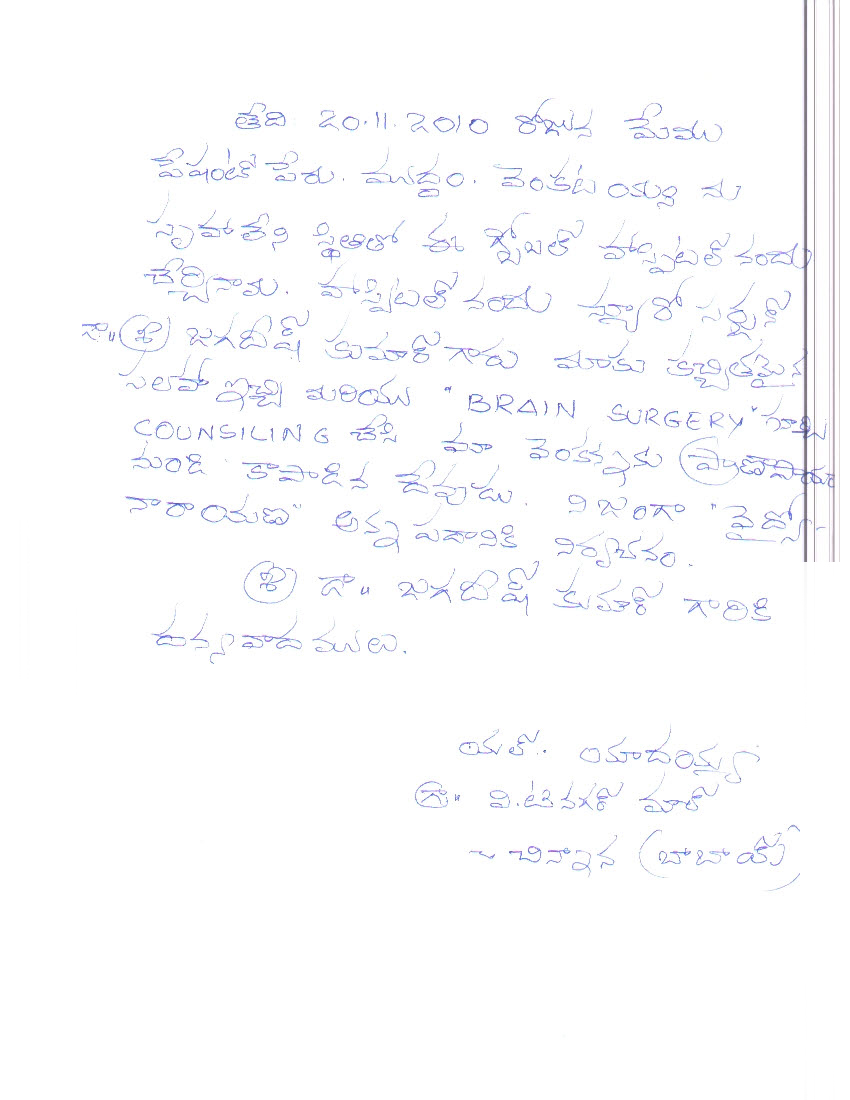 తేది 20.11.2010 రోజున మేము
పేషంట్ పేరు. ముద్దం. వెంకటయ్య ను
స్పృహలేని స్థితిలో ఈ గ్లోబల్ హాస్పిటల్ నందు
చేర్చినాము. హాస్పిటల్ నందు న్యూరో సర్జన్
డా॥ శ్రీ జగదీష్ కుమార్ గారు మాకు కచ్చితమైన
సలహా ఇచ్చి మరియు "BRAIN SURGERY" గూర్చి
COUNSILING చేసి మా వెంకన్నను ప్రాణాపాయం
నుండి కాపాడిన దేవుడు. నిజంగా "వైద్యో-
నారాయణ" అన్న పదానికి నిర్వచనం.
శ్రీ డా॥ జగదీష్ కుమార్ గారికి
ధన్యవాదములు.
యల్. యాదయ్య
గ్రా॥ వి.టి నగర్ మాల్
~ చిన్నాన్న (బాబాయ్)